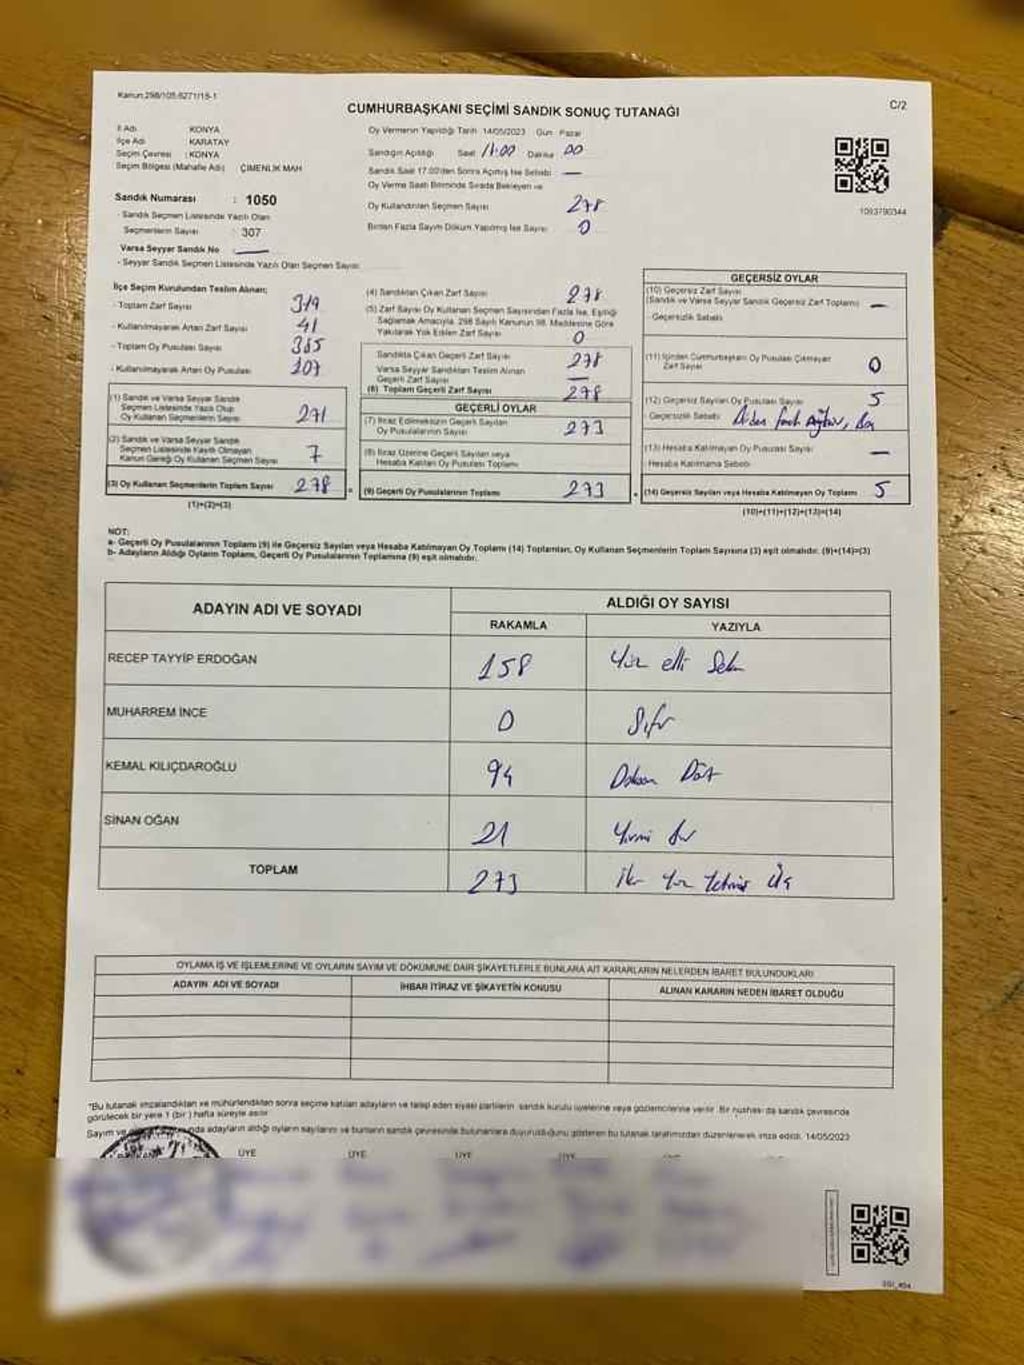 Kanun:298/105,6271/15-1
C/2
CUMHURBAŞKANI SEÇİMİ SANDIK SONUÇ TUTANAĞI
İl Adı KONYA
İlçe Adı KARATAY
Seçim Çevresi : KONYA
Seçim Bölgesi (Mahalle Adı) : ÇİMENLİK MAH
Sandık Numarası : 1050
- Sandık Seçmen Listesinde Yazılı Olan
Seçmenlerin Sayısı : 307
Varsa Seyyar Sandık No : —
- Seyyar Sandık Seçmen Listesinde Yazılı Olan Seçmen Sayısı
Oy Vermenin Yapıldığı Tarih 14/05/2023 Gün Pazar
Sandığın Açıldığı Saat Dakika 00
Sandık Saat 17.00'den Sonra Açılmış İse Sebebi —
Oy Verme Saati Bitiminde Sırada Bekleyen ve
Oy Kullandırılan Seçmen Sayısı 278
Birden Fazla Sayım Döküm Yapılmış İse Sayısı 0
1093790344
İlçe Seçim Kurulundan Teslim Alınan;
- Toplam Zarf Sayısı 319
- Kullanılmayarak Artan Zarf Sayısı 41
- Toplam Oy Pusulası Sayısı
- Kullanılmayarak Artan Oy Pusulası 107
(1) Sandık ve Varsa Seyyar Sandık
Seçmen Listesinde Yazılı Olup
Oy Kullanan Seçmenlerin Sayısı 271
(2) Sandık ve Varsa Seyyar Sandık
Seçmen Listesinde Kayıtlı Olmayan
Kanun Gereği Oy Kullanan Seçmen Sayısı 7
(3) Oy Kullanan Seçmenlerin Toplam Sayısı 278
(1)+(2)=(3)
(4) Sandıktan Çıkan Zarf Sayısı 278
(5) Zarf Sayısı Oy Kullanan Seçmen Sayısından Fazla İse, Eşitliği
Sağlamak Amacıyla, 298 Sayılı Kanunun 98. Maddesine Göre
Yakılarak Yok Edilen Zarf Sayısı 0
Sandıkta Çıkan Geçerli Zarf Sayısı 278
Varsa Seyyar Sandıktan Teslim Alınan
Geçerli Zarf Sayısı —
(6) Toplam Geçerli Zarf Sayısı 278
GEÇERLİ OYLAR
(7) İtiraz Edilmeksizin Geçerli Sayılan
Oy Pusulalarının Sayısı 273
(8) İtiraz Üzerine Geçerli Sayılan veya
Hesaba Katılan Oy Pusulası Toplamı
(9) Geçerli Oy Pusulalarının Toplamı 273
GEÇERSİZ OYLAR
(10) Geçersiz Zarf Sayısı
(Sandık ve Varsa Seyyar Sandık Geçersiz Zarf Toplamı) —
- Geçersizlik Sebebi
(11) İçinden Cumhurbaşkanı Oy Pusulası Çıkmayan
Zarf Sayısı 0
(12) Geçersiz Sayılan Oy Pusulası Sayısı 5
- Geçersizlik Sebebi
(13) Hesaba Katılmayan Oy Pusulası Sayısı —
- Hesaba Katılmama Sebebi
(14) Geçersiz Sayılan veya Hesaba Katılmayan Oy Toplamı 5
(10)+(11)+(12)+(13)=(14)
NOT:
a- Geçerli Oy Pusulalarının Toplamı (9) ile Geçersiz Sayılan veya Hesaba Katılmayan Oy Toplamı (14) Toplamları, Oy Kullanan Seçmenlerin Toplam Sayısına (3) eşit olmalıdır. (9)+(14)=(3)
b- Adayların Aldığı Oyların Toplamı, Geçerli Oy Pusulalarının Toplamına (9) eşit olmalıdır.
ADAYIN ADI VE SOYADI ALDIĞI OY SAYISI
RAKAMLA YAZIYLA
RECEP TAYYİP ERDOĞAN 158 Yüz elli Sekiz
MUHARREM İNCE 0 Sıfır
KEMAL KILIÇDAROĞLU 94 Doksan Dört
SİNAN OĞAN 21 Yirmi Bir
TOPLAM 273 İki Yüz Yetmiş Üç
OYLAMA İŞ VE İŞLEMLERİNE VE OYLARIN SAYIM VE DÖKÜMÜNE DAİR ŞİKAYETLERLE BUNLARA AİT KARARLARIN NELERDEN İBARET BULUNDUKLARI
ADAYIN ADI VE SOYADI İHBAR İTİRAZ VE ŞİKAYETİN KONUSU ALINAN KARARIN NEDEN İBARET OLDUĞU
*Bu tutanak imzalandıktan ve mühürlendikten sonra seçime katılan adayların ve talep eden siyasi partilerin sandık kurulu üyelerine veya gözlemcilerine verilir. Bir nushası da sandık çevresinde
görülecek bir yere 1 (bir) hafta süreyle asılır.
Sayım ve adayların aldığı oyların sayılarını ve bunların sandık çevresinde bulunanlara duyurulduğunu gösteren bu tutanak tarafımızdan düzenlenerek imza edildi. 14/05/2023
ÜYE ÜYE ÜYE ÜYE